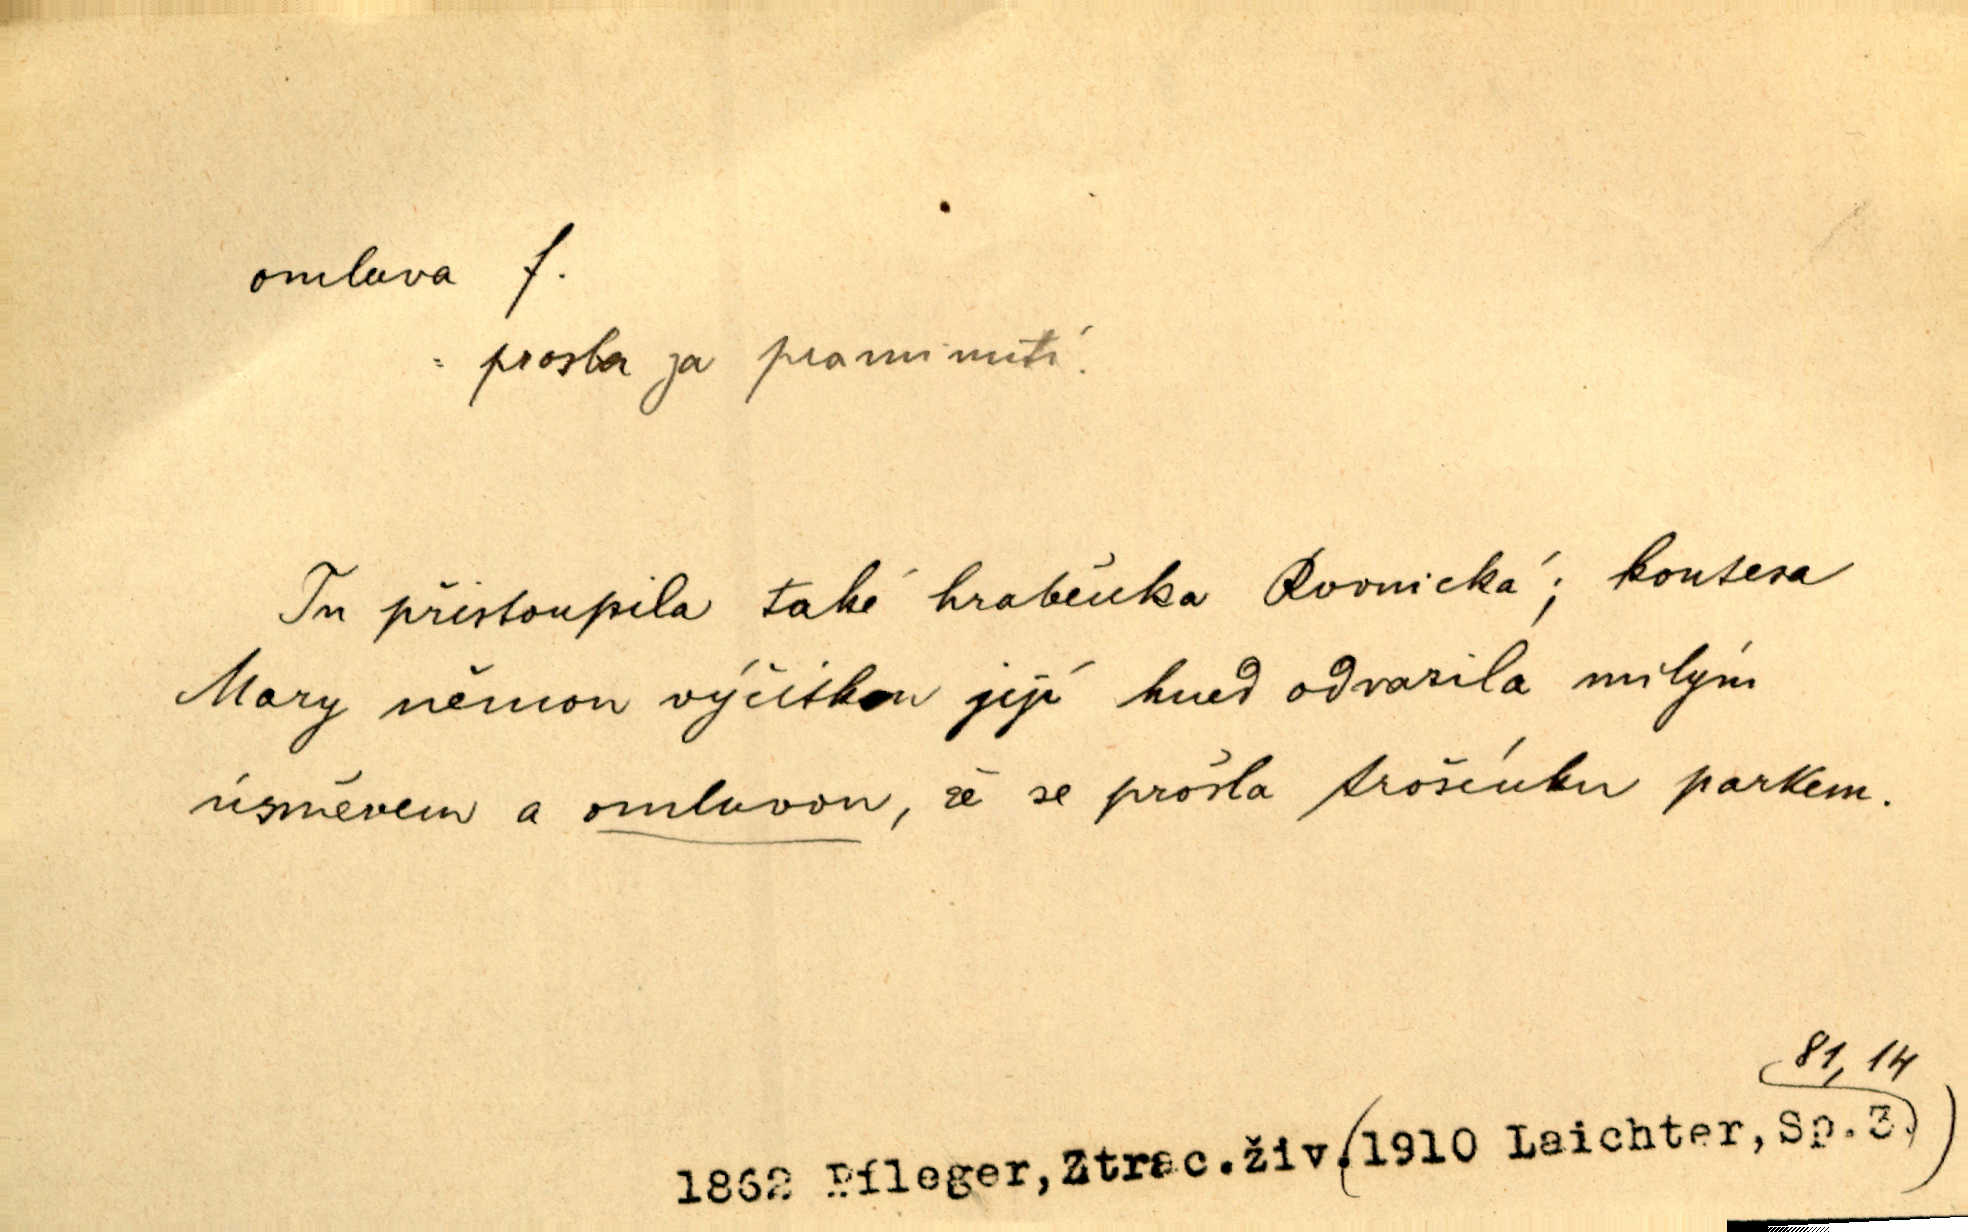 omluva f.
= prosba za prominutí.
Tu přistoupila také hraběnka Rovnická; kontesa
Mary němou výčitku její hned odrazila milým
úsměvem a omluvou, že se prošla trošínku parkem.
81, 14
1862 Pfleger, Ztrac. živ. (1910 Laichter, Sp. 3.)